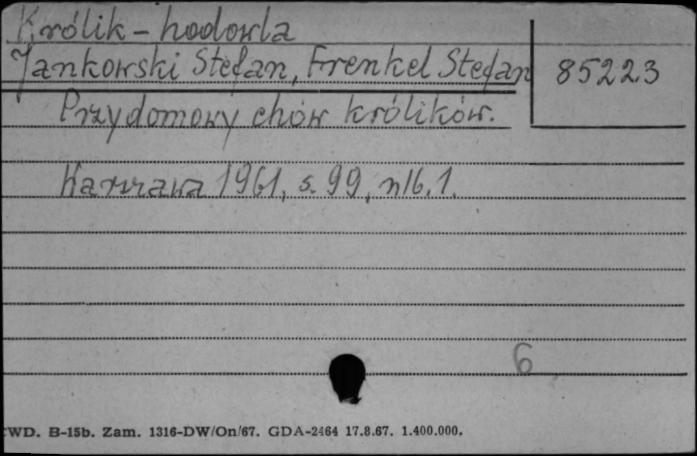 Królik - hodowla
Jankowski Stefan, Frenkel Stefan 85223
Przydomowy chów królików.
Warszawa 1961, s. 99, nlb. 1.
6
WD. B-15b. Zam. 1316-DW/On/67. GDA-2464 17.8.67. 1.400.000.